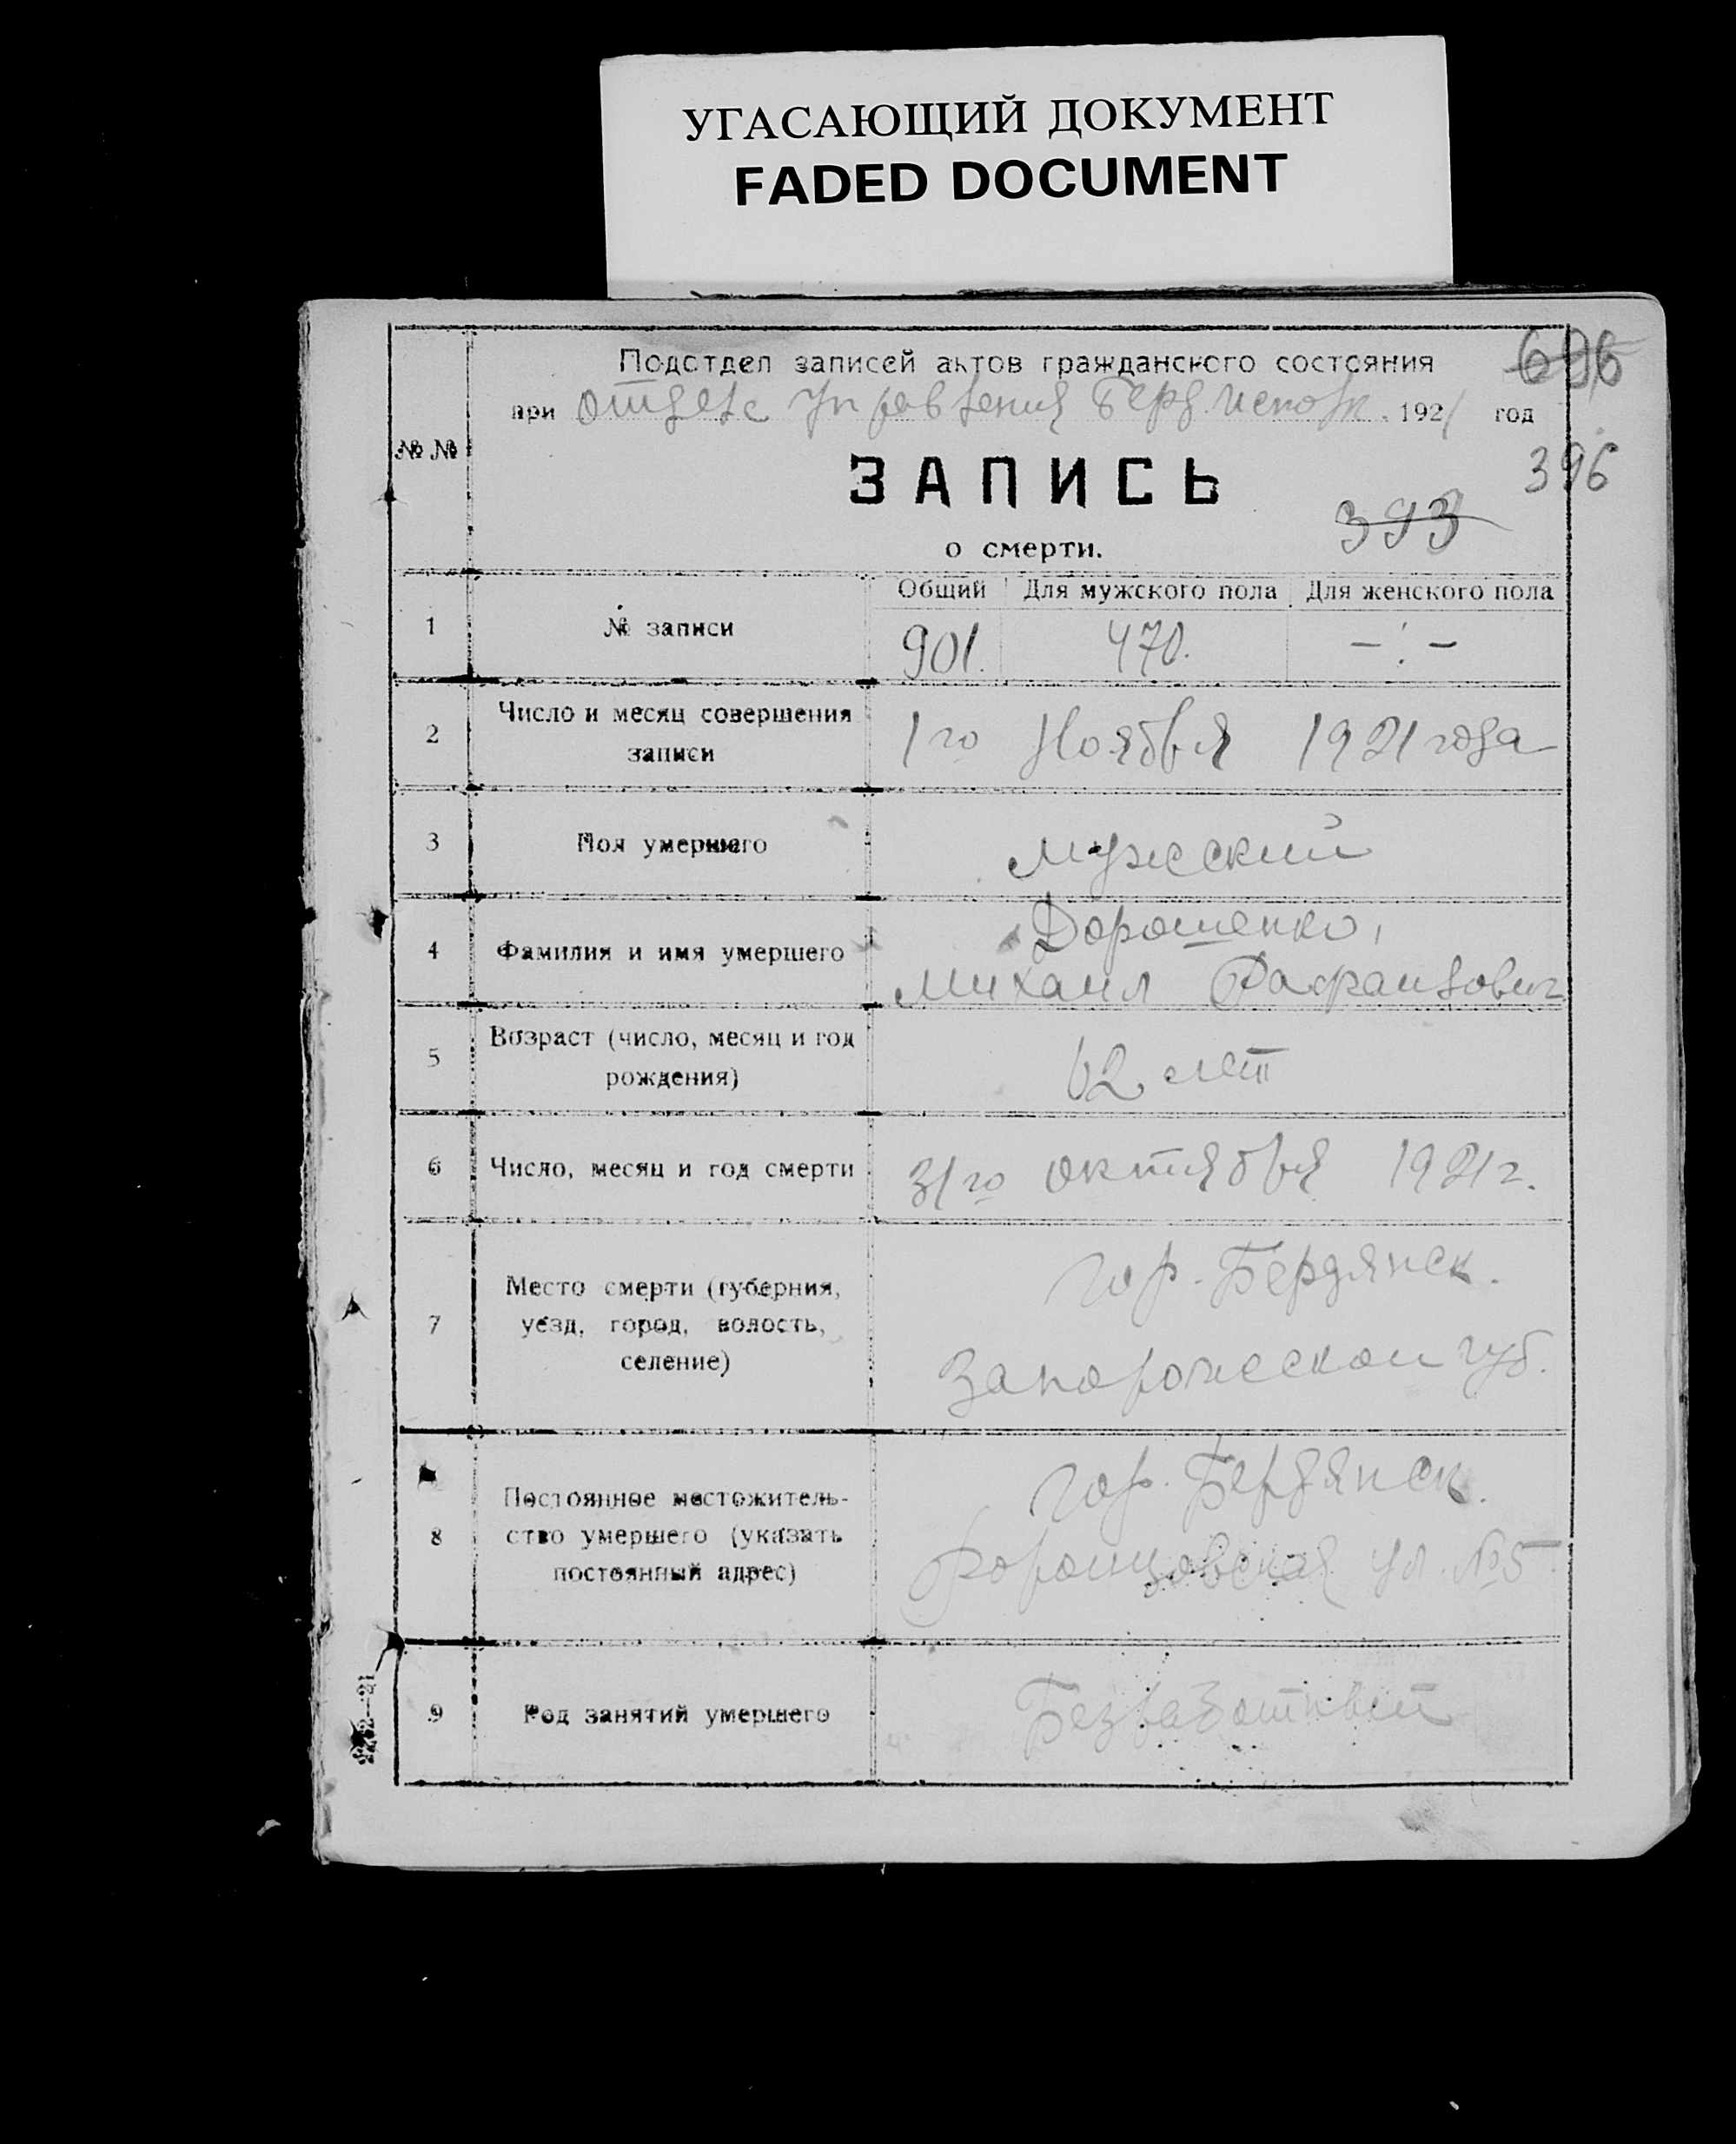 УГАСАЮЩИЙ ДОКУМЕНТ
FADED DOCUMENT
Подотдел записей актов гражданского состояния
696
при отделе Управления Берд. Исполк. 1921 год
№№
396
ЗАПИСЬ
393
о смерти.
Общий Для мужского пола Для женского пола
1 № записи 901. 470. — : —
2 Число и месяц совершения
записи
1го Ноября 1921 года
3 Пол умершего Мужеский
4 Фамилия и имя умершего
Дорошенко,
Михаил
5 Возраст (число, месяц и год
рождения)
62 лет
6 Число, месяц и год смерти 31го октября 1921 г.
7 Место смерти (губерния,
уезд, город, волость,
селение)
Гор. Бердянск.
Запорожеской губ.
8 Постоянное местожитель-
ство умершего (указать
постоянный адрес)
Гор. Бердянск.
Воронцовская ул. №5
9 Род занятий умершего